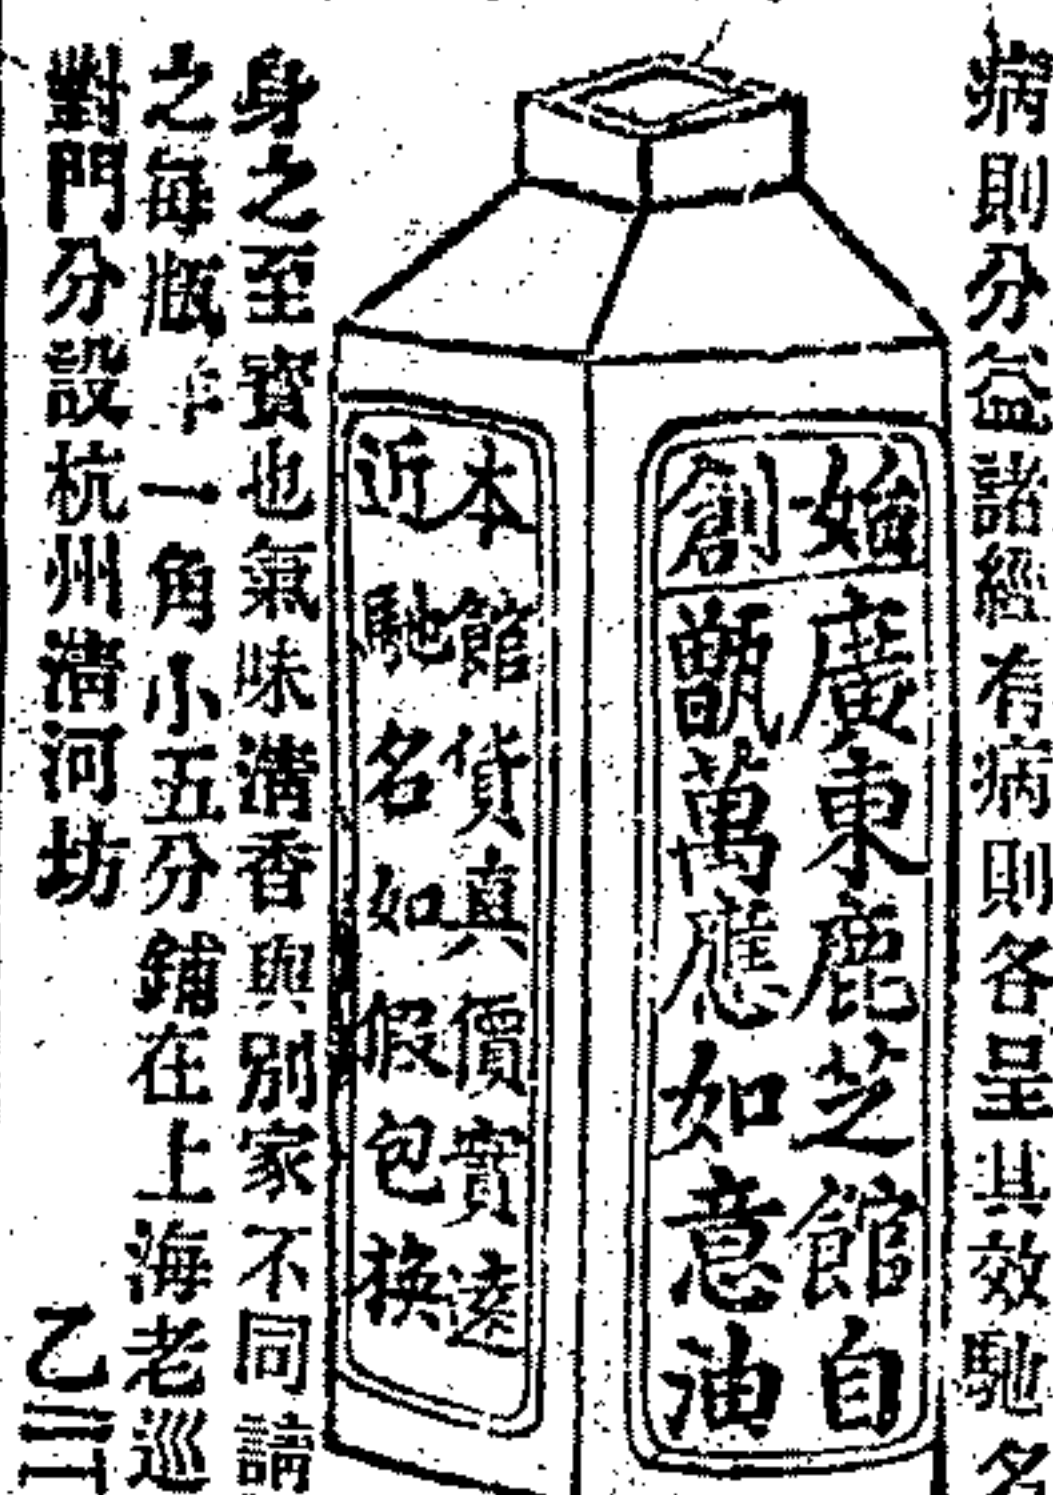 病則分益諸經有病則各呈其效馳名
始創
廣東鹿芝館自
甑萬應如意油
本館貨真價實遠
近馳名如假包換
身之至寶也氣味清香與別家不同請
之每瓶洋一角小五分鋪在上海老巡
對門分設杭州清河坊
乙三二